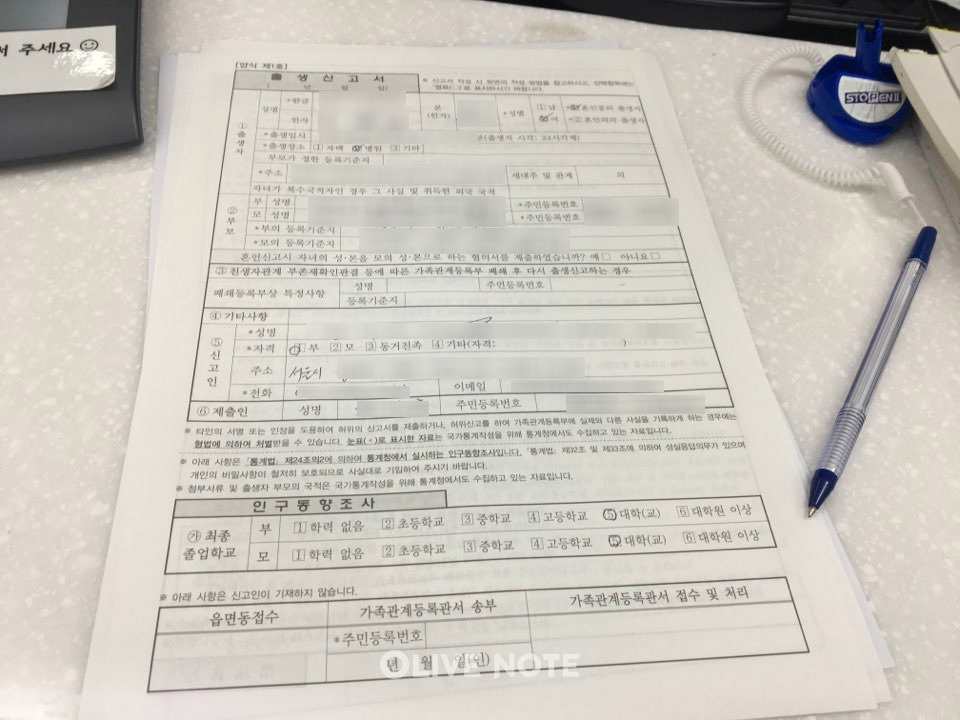 서 주세요 ☺
STOPEN II
[양식 제1호]
출 생 신 고 서
( 년 월 일)
※ 신고서 작성 시 뒷면의 작성 방법을 참고하시고, 선택항목에는 '영표(○)'로 표시하시기 바랍니다.
① 출생자
성명 *한글 본(한자) *성별 ①남 ②여 *①혼인중의 출생자
한자 *②혼인외의 출생자
*출생일시 분(출생지 시각: 24시각제)
*출생장소 ①자택 ②병원 ③기타
부모가 정한 등록기준지
*주소 세대주 및 관계 의
자녀가 복수국적자인 경우 그 사실 및 취득한 외국 국적
② 부모
부 성명 *주민등록번호
모 성명 *주민등록번호
*부의 등록기준지
*모의 등록기준지
혼인신고시 자녀의 성·본을 모의 성·본으로 하는 협의서를 제출하였습니까? 예□ 아니요□
③ 친생자관계 부존재확인판결 등에 따른 가족관계등록부 폐쇄 후 다시 출생신고하는 경우
폐쇄등록부상 특정사항 성명 주민등록번호 -
등록기준지
④ 기타사항
⑤ 신고인
*성명
*자격 ①부 ②모 ③동거친족 ④기타(자격: )
주소 서울시
*전화 이메일
⑥ 제출인 성명 주민등록번호
※ 타인의 서명 또는 인장을 도용하여 허위의 신고서를 제출하거나, 허위신고를 하여 가족관계등록부에 실제와 다른 사실을 기록하게 하는 경우에는
형법에 의하여 처벌받을 수 있습니다. 눈표(*)로 표시한 자료는 국가통계작성을 위해 통계청에서도 수집하고 있는 자료입니다.
※ 아래 사항은 「통계법」 제24조의2에 의하여 통계청에서 실시하는 인구동향조사입니다. 「통계법」 제32조 및 제33조에 의하여 성실응답의무가 있으며
개인의 비밀사항이 철저히 보호되므로 사실대로 기입하여 주시기 바랍니다.
※ 첨부서류 및 출생자 부모의 국적은 국가통계작성을 위해 통계청에서도 수집하고 있는 자료입니다.
인 구 동 향 조 사
㉮ 최종 졸업학교
부 1 학력 없음 2 초등학교 3 중학교 4 고등학교 5 대학(교) 6 대학원 이상
모 1 학력 없음 2 초등학교 3 중학교 4 고등학교 5 대학(교) 6 대학원 이상
※ 아래 사항은 신고인이 기재하지 않습니다.
읍면동접수 가족관계등록관서 송부 가족관계등록관서 접수 및 처리
*주민등록번호
년 월 일(인)
OLIVE NOTE